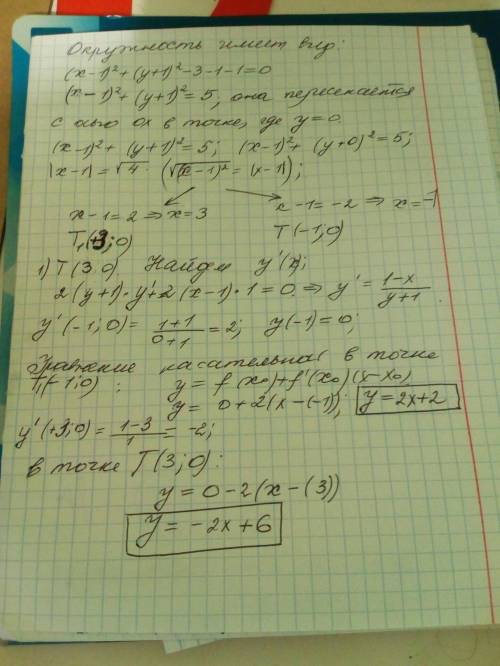 Окружность имеет вид:
(x-1)²+(y+1)²-3-1-1=0
(x-1)²+(y+1)²=5, она пересекается
с осью Ox в точке, где y=0.
(x-1)²+(y+1)²=5; (x-1)²+(y+0)²=5;
|x-1|=√4 (√(x-1)²=|x-1|);
x-1=2 ⇒ x=3
x-1=-2 ⇒ x=-1
T₁(+3;0)
T(-1;0)
1) T(3;0) Найдем y'(x);
2(y+1)·y'+2(x-1)·1=0 ⇒ y'=(1-x)/(y+1)
y'(-1;0)=(1+1)/(0+1)=2; y(-1)=0;
Уравнение касательной в точке
T₁(-1;0): y=f(x₀)+f'(x₀)(x-x₀)
y=0+2(x-(-1)); y=2x+2
y'(+3;0)=(1-3)/1=-2;
в точке T(3;0):
y=0-2(x-(3))
y=-2x+6